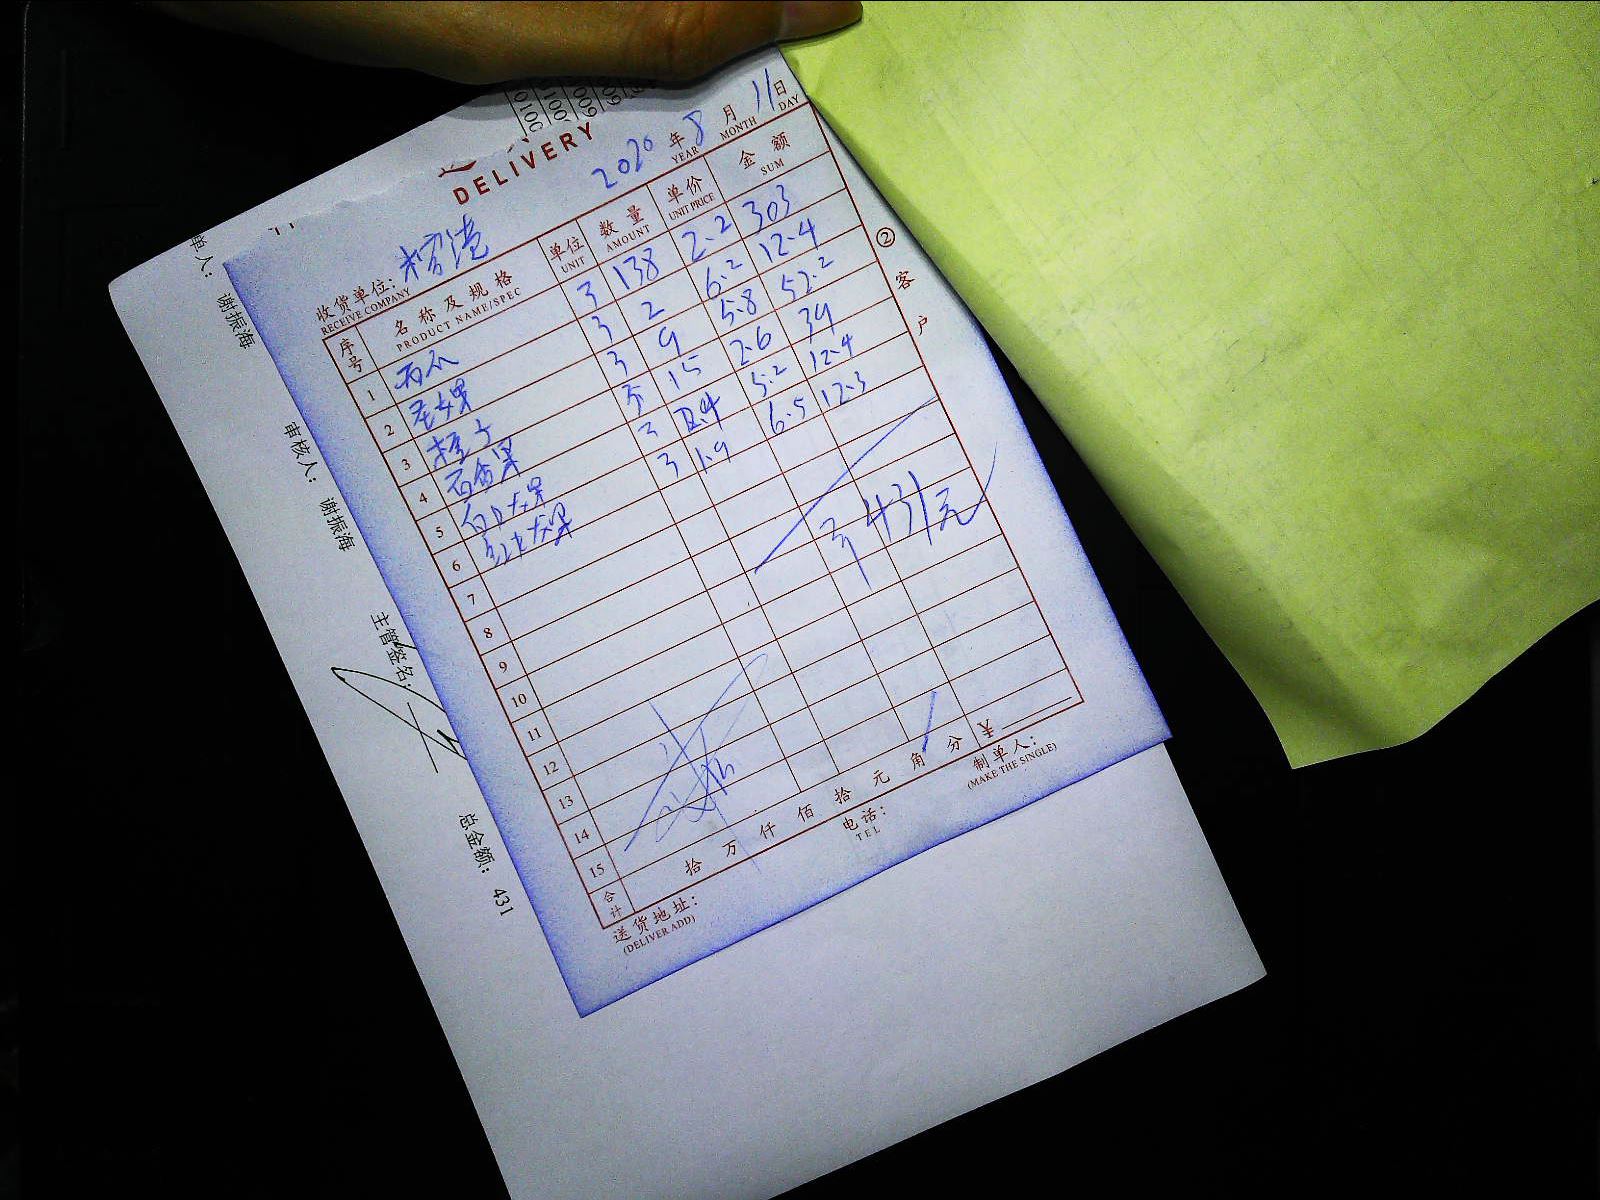 DELIVERY
2020 年 8 月 11 日
YEAR MONTH DAY
收货单位:
RECEIVE COMPANY
序号 名称及规格 单位 数量 单价 金额
PRODUCT NAME/SPEC UNIT AMOUNT UNIT PRICE SUM
1 西瓜 138 2.2 303
2 圣女果 2 6.2 12.4
3 橙子 9 5.8 52.2
4 百香果 15 2.6 39
5 白火龙果 2.4 5.2 12.4
6 红火龙果 1.9 6.5 12.3
7
8
9
10
11
12
13
14
15
431元
合计 拾 万 仟 佰 拾 元 角 分 ¥
送货地址:
(DELIVER ADD)
电话:
TEL
制单人:
(MAKE THE SINGLE)
②客户
单人: 谢振海
审核人: 谢振海
主管签名:
总金额: 431